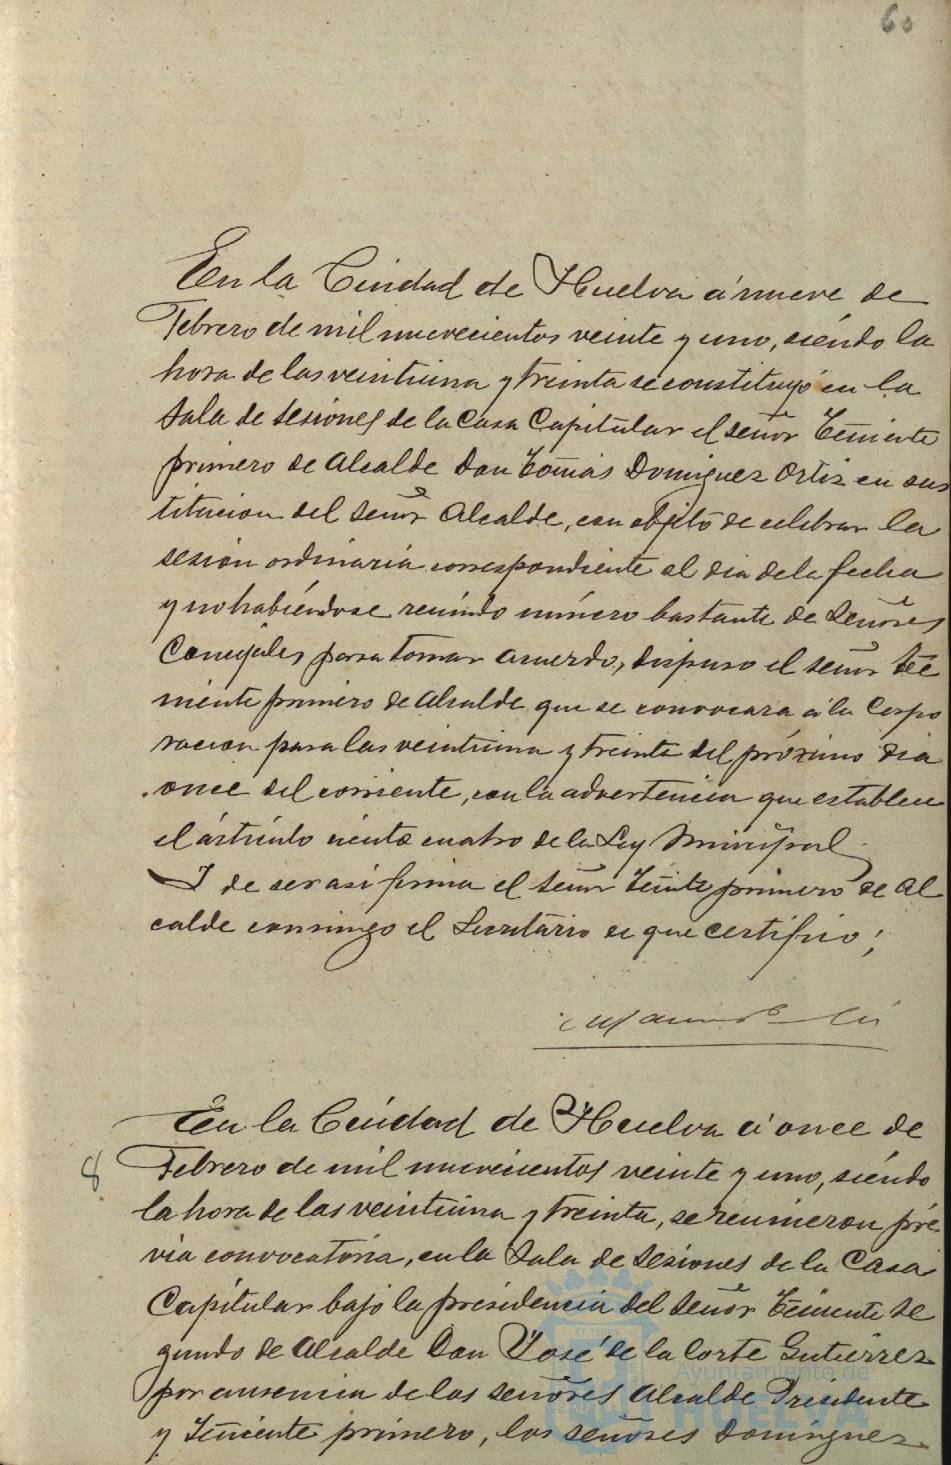 60
En la Ciudad de Huelva á nueve de
Febrero de mil nuevecientos veinte y uno, siéndo la
hora de las veintiuna y treinta se constituyó en la
Sala de Sesiones de la Casa Capitular el señor Teniente
primero de Alcalde Don Tomás Dominguez Ortiz en sus
titucion del Señor Alcalde, con objeto de celebrar la
sesión ordinaria correspondiente al dia de la fecha
y no habiéndose reunido número bastante de Señores
Concejales para tomar acuerdo, dispuso el señor Te
niente primero de Alcalde que se convocara á la Corpo
racion para las veintiuna y treinta del próximo dia
once del corriente, con la advertencia que establece
el artículo ciento cuatro de la Ley Municipal
Y de ser asi firma el Señor Teniente primero de Al
calde conmigo el Secretario de que certifico;
En la Ciudad de Huelva á once de
8
Febrero de mil nuevecientos veinte y uno, siéndo
la hora de las veintiuna y treinta, se reunieron pré
via convocatoria, en la Sala de Sesiones de la Casa
Capitular bajo la presidencia del Señor Teniente Se
gundo de Alcalde Don José de la Corte Gutierrez
por ausencia de los señores Alcalde Presidente
y Teniente primero, los señores Dominguez
Ayuntamiento de
HUELVA